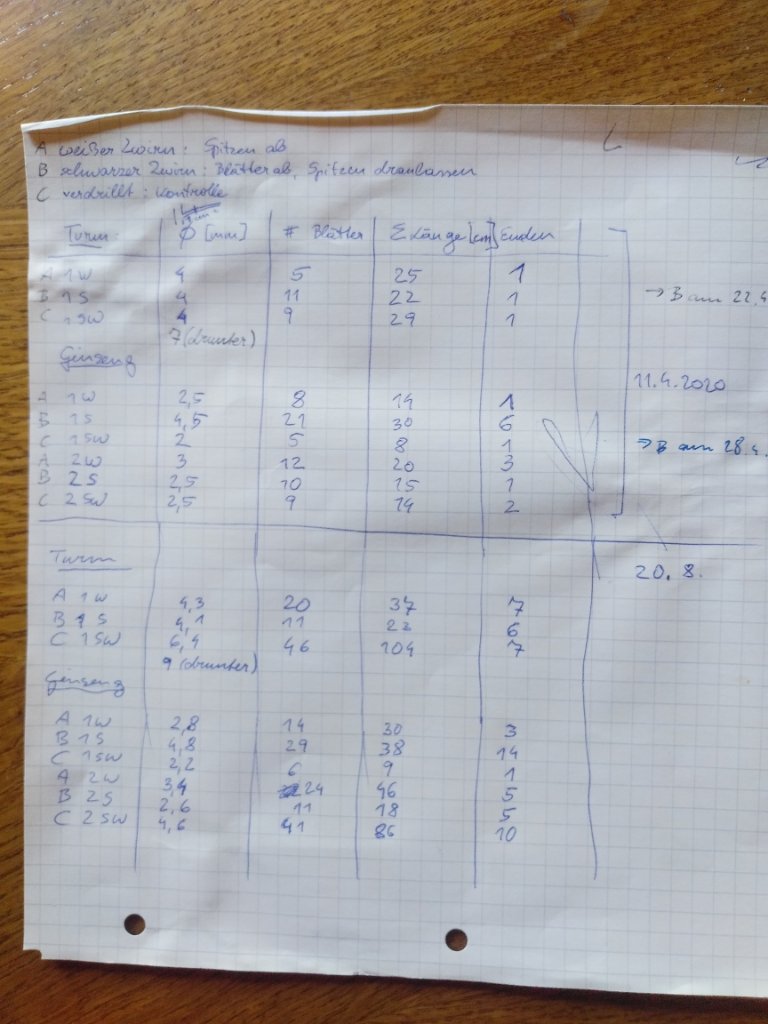 A weißer Zwirn: Spitzen ab
B schwarzer Zwirn: Blätter ab, Spitzen dranlassen
C verdrillt: Kontrolle
Turm: Ø [mm] # Blätter Σ Länge [cm] Enden
A 1W 4 5 25 1
B 1S 4 11 22 1 → B am 22.4
C 1SW 4 9 29 1
7 (drunter)
Ginseng
11.4.2020
A 1W 2,5 8 14 1
B 1S 4,5 21 30 6
C 1SW 2 5 8 1 → B am 28.4.
A 2W 3 12 20 3
B 2S 2,5 10 15 1
C 2SW 2,5 9 14 2
Turm 20.8.
A 1W 4,3 20 37 7
B 1S 4,1 11 23 6
C 1SW 6,4 46 104 7
9 (drunter)
Ginseng
A 1W 2,8 14 30 3
B 1S 4,8 29 38 14
C 1SW 2,2 6 9 1
A 2W 3,4 24 46 5
B 2S 2,6 11 18 5
C 2SW 4,6 41 86 10